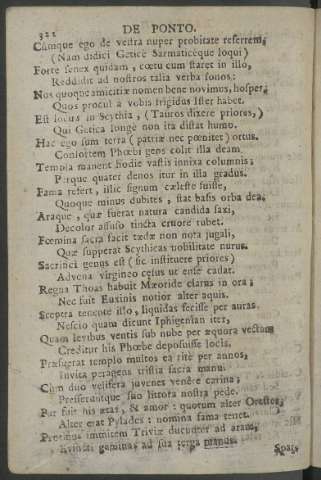 322 DE PONTO.
Cumque ego de vestra nuper probitate referrem,
(Nam didici Getice Sarmaticeque loqui)
Forte senex quidam, cœtu cum staret in illo,
Reddidit ad nostros talia verba sonos:
Nos quoque amicitiæ nomen bene novimus, hospes,
Quos procul a vobis frigidus Ister habet.
Est locus in Scythia, (Tauros dixere priores,)
Qui Getica longe non ita distat humo.
Hac ego sum terra (patriæ nec pœnitet) ortus.
Consortem Phœbi gens colit illa deam.
Templa manent hodie vastis innixa columnis;
Perque quater denos itur in illa gradus.
Fama refert, illic signum cæleste fuisse,
Quoque minus dubites, stat basis orba dea.
Araque, quæ fuerat natura candida saxi,
Decolor affuso tincta cruore rubet.
Fœmina sacra facit tædæ non nota jugali,
Quæ supperat Scythicas nobilitate nurus.
Sacrifici genus est (sic instituere priores)
Advena virgineo cæsus ut ense cadat.
Regna Thoas habuit Mæotide clarus in ora;
Nec fuit Euxinis notior alter aquis.
Sceptra tenente illo, liquidas fecisse per auras.
Nescio quam dicunt Iphigenian iter,
Quam levibus ventis sub nube per æquora vectam
Creditur his Phœbe deposuisse locis.
Præfuerat templo multos ea rite per annos,
Invita peragens tristia sacra manu.
Cum duo velifera juvenes venere carina;
Presseruntque suo littora nostra pede.
Par fuit his ætas, & amor: quorum alter Orestes,
Alter erat Pylades: nomina fama tenet.
Protinus immitem Triviæ ducuntur ad aram,
Evincti geminas ad sua terga manus.
Spar-